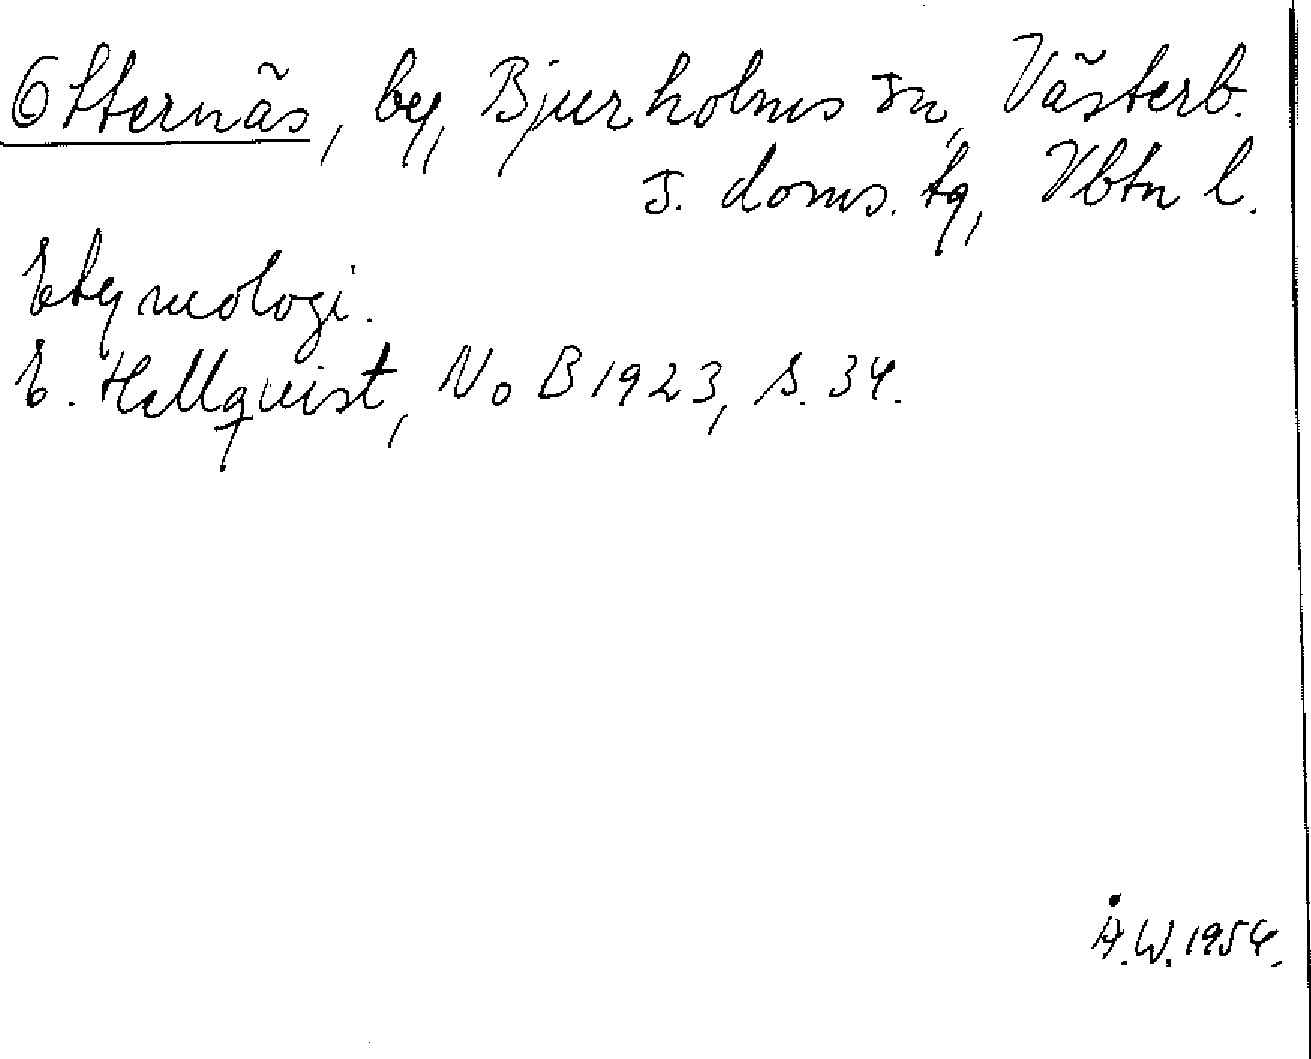 Otternäs, by, Bjurholms sn, Västerb.
s. doms. tg, Vbtn l.
Etymologi.
E. Hellquist, NoB 1923, s. 34.
Å.W. 1954.